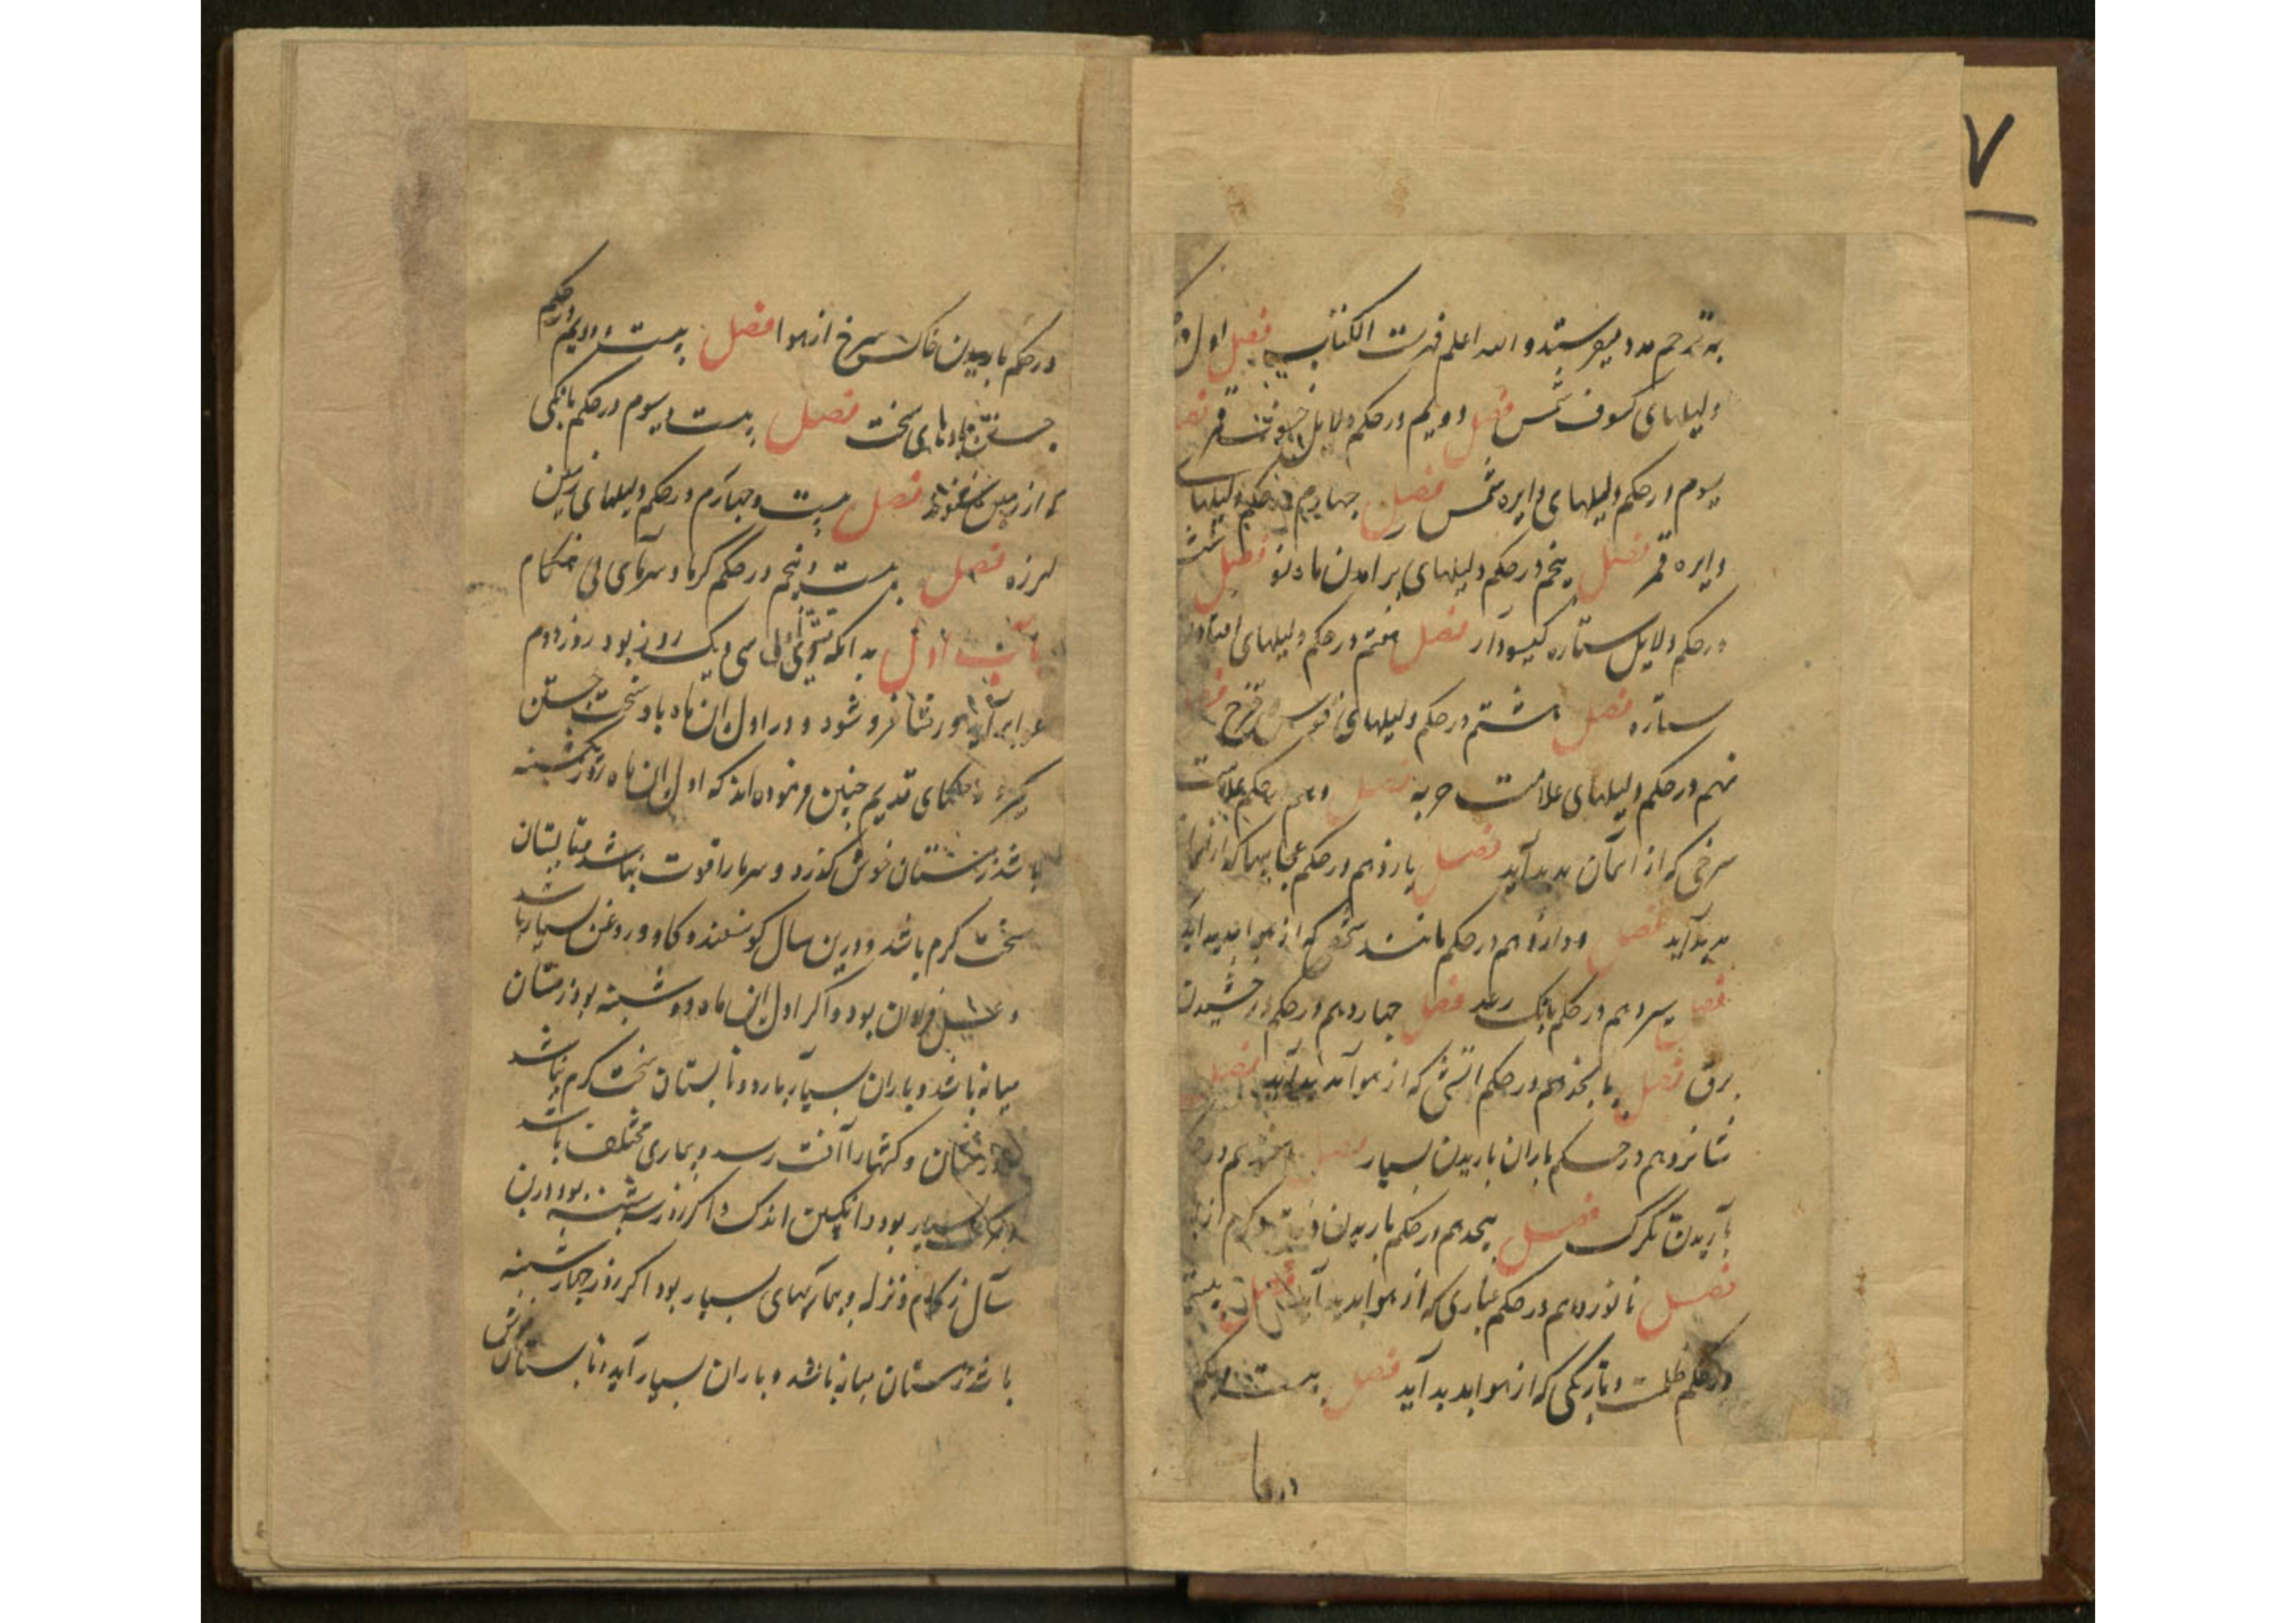 ۷
به ترحم مدد میفرستد و الله اعلم فهرست الکتاب فصل اول در
دلیلهای کسوف شمس فصل دویم در حکم دلایل خسوف قمر فصل
سیوم در حکم دلیلهای دایره شمس فصل چهارم در حکم دلیلهای
دایره قمر فصل پنجم در حکم دلیلهای برامدن ماه نو فصل ششم
در حکم دلایل ستاره کیسودار فصل هفتم در حکم دلیلهای افتادن
ستاره فصل هشتم در حکم دلیلهای قوس قزح فصل
نهم در حکم دلیلهای علامت حربه فصل دهم در حکم علامت
سرخی که از اسمان بدید آید فصل یازدهم در حکم عجایبها که از هوا
بدید آید فصل دوازدهم در حکم مانند که از هوا بدید اید
فصل سیزدهم در حکم بانک رعد فصل چهاردهم در حکم درخشیدن
برق فصل پانجدهم در حکم اتشی که از هوا بدید آید فصل
شانزدهم در حکم باران باریدن بسیار فصل هفدهم در
باریدن تکرک فصل هیجدهم در حکم باریدن و کرم از
فصل نانوزدهم در حکم غباری که از هوا بدید آید فصل بیستم
در حکم ظلمت و تاریکی که از هوا بدید آید فصل بیست و یکم
در با
در حکم باریدن خاک سرخ از هوا فصل بیست و دویم در حکم
جستن بادهای سخت فصل بیست و سیوم در حکم بانکی
که از زمین شنوند فصل بیست و چهارم در حکم دلیلهای زمین
لرزه فصل بیست و پنجم در حکم کرما و سرمای بی هنکام
باب اول بدانکه تشرین اول سی و یک روز بود روز دوم
فرو شود و در اول ان ماه باد سخت جستن
کیرد و حکمای قدیم چنین فرموده اند که اول ان ماه روز یکشنبه
باشد زمستان خوش کذرد و سرما را قوت نباشد و تابستان
سخت کرم باشد و درین سال کوسفند و کاو و روغن بسیار باشد
و عسل فراوان بود و اکر اول ان ماه دوشنبه بود زمستان
میانه باشد و باران بسیار بارد و تابستان سخت کرم نباشد
درختان و کشتها را آفت رسد و بیماری مختلف باشد
و مرک بسیار بود و انکبین اندک و اکر روز سه شنبه بود درین
سال زکام و نزله و بیماریهای بسیار بود اکر روز چهارشنبه
باشد زمستان میانه باشد و باران بسیار آید و تابستان خوش